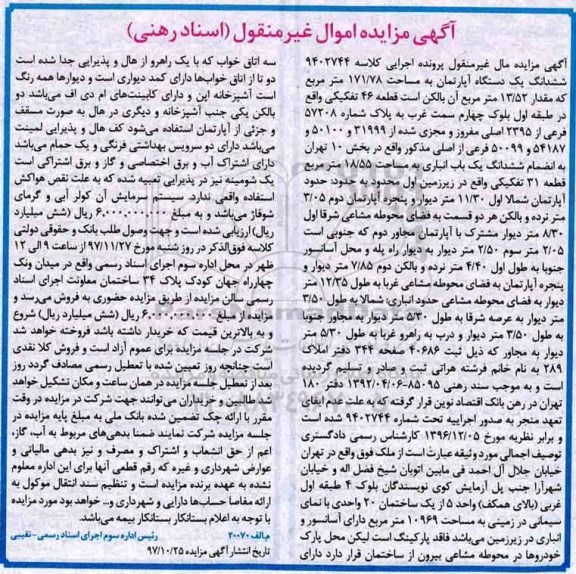 آگهی مزایده اموال غیرمنقول (اسناد رهنی)
آگهی مزایده مال غیرمنقول پرونده اجرایی کلاسه ۹۴۰۲۷۴۴
ششدانگ یک دستگاه آپارتمان به مساحت ۱۷۱/۷۸ متر مربع
که مقدار ۱۳/۵۲ متر مربع آن بالکن است قطعه ۴۶ تفکیکی واقع
در طبقه اول بلوک چهارم سمت غرب به پلاک شماره ۵۷۲۰۸
فرعی از ۲۳۹۵ اصلی مفروز و مجزی شده از ۳۱۹۹۹ و ۵۰۱۰۰ و
۵۴۱۸۷ و ۵۰۰۹۹ فرعی از اصلی مذکور واقع در بخش ۱۰ تهران
به انضمام ششدانگ یک باب انباری به مساحت ۱۸/۵۵ متر مربع
قطعه ۳۱ تفکیکی واقع در زیرزمین اول محدود به حدود: حدود
آپارتمان شمالا اول ۱۱/۳۰ متر دیوار و پنجره آپارتمان دوم ۳/۰۵
متر نرده و بالکن هر دو قسمت به فضای محوطه مشاعی شرقا اول
۸/۳۰ متر دیوار مشترک با آپارتمان مجاور دوم که جنوبی است
۲/۰۵ متر سوم ۲/۵۰ متر دیوار به دیوار راه پله و محل آسانسور
جنوبا به طول اول ۴/۴۰ متر نرده و بالکن دوم ۷/۸۵ متر دیوار و
پنجره آپارتمان به فضای محوطه مشاعی غربا به طول ۱۲/۳۵ متر
دیوار به فضای محوطه مشاعی حدود انباری: شمالا به طول ۳/۵۰
متر دیوار به عرصه شرقا به طول ۵/۳۰ متر دیوار به مجاور جنوبا
به طول ۳/۵۰ متر دیوار و درب به راهرو غربا به طول ۵/۳۰ متر
دیوار به مجاور که ذیل ثبت ۴۰۶۸۶ صفحه ۳۴۴ دفتر املاک
۲۸۹ به نام خانم فرشته هراتی ثبت و صادر و تسلیم گردیده
است و به موجب سند رهنی ۸۵۰۹۵-۱۳۹۲/۰۴/۰۶ دفتر ۱۸۰
تهران در رهن بانک اقتصاد نوین قرار گرفته که به علت عدم ایفای
تعهد منجر به صدور اجراییه تحت شماره ۹۴۰۲۷۴۴ شده است
و برابر نظریه مورخ ۱۳۹۶/۱۲/۰۵ کارشناس رسمی دادگستری
توصیف اجمالی مورد وثیقه عبارت است از ملک فوق واقع در تهران
خیابان جلال آل احمد فی مابین اتوبان شیخ فضل اله و خیابان
شهرآرا جنب پل آزمایش کوی نویسندگان بلوک ۴ طبقه اول
غربی (بالای همکف) واحد ۵ از یک ساختمان ۲۰ واحدی با نمای
سیمانی در زمینی به مساحت ۱۰۹۶۹ متر مربع دارای آسانسور و
انباری در زیرزمین می‌باشد فاقد پارکینگ است لیکن محل پارک
خودروها در محوطه مشاعی بیرون از ساختمان قرار دارد دارای
سه اتاق خواب که با یک راهرو از هال و پذیرایی جدا شده است
دو تا از اتاق خواب‌ها دارای کمد دیواری است و دیوارها همه رنگ
است آشپزخانه اپن و دارای کابینت‌های ام دی اف می‌باشد دو
بالکن یکی جنب آشپزخانه و دیگری در هال به صورت مسقف
و جزئی از آپارتمان استفاده می‌شود کف هال و پذیرایی لمینت
می‌باشد دارای دو سرویس بهداشتی فرنگی و یک حمام می‌باشد
دارای اشتراک آب و برق اختصاصی و گاز و برق اشتراکی است
یک شومینه نیز در پذیرایی تعبیه شده که به علت نقص هواکش
استفاده واقعی ندارد. سیستم سرمایش آن کولر آبی و گرمای
شوفاژ می‌باشد و به مبلغ ۶.۰۰۰.۰۰۰.۰۰۰ ریال (شش میلیارد
ریال) ارزیابی شده است و جهت وصول طلب بانک و حقوقی دولتی
کلاسه فوق‌الذکر در روز شنبه مورخ ۹۷/۱۱/۲۷ از ساعت ۹ الی ۱۲
ظهر در محل اداره سوم اجرای اسناد رسمی واقع در میدان ونک
چهارراه جهان کودک پلاک ۳۴ ساختمان معاونت اجرای اسناد
رسمی سالن مزایده از طریق مزایده حضوری به فروش می‌رسد و
مزایده از مبلغ ۶.۰۰۰.۰۰۰.۰۰۰ ریال (شش میلیارد ریال) شروع
و به بالاترین قیمت که خریدار داشته باشد فروخته خواهد شد
شرکت در جلسه مزایده برای عموم آزاد است و فروش کلا نقدی
است چنانچه روز تعیین شده با تعطیل رسمی مصادف گردد روز
بعد از تعطیل جلسه مزایده در همان ساعت و مکان تشکیل خواهد
شد طالبین و خریداران می‌توانند جهت شرکت در مزایده در وقت
مقرر با ارائه چک تضمین شده بانک ملی به مبلغ پایه مزایده در
جلسه مزایده شرکت نمایند ضمنا بدهی‌های مربوط به آب، گاز،
اعم از حق انشعاب و اشتراک و مصرف و نیز بدهی مالیاتی و
عوارض شهرداری و غیره که رقم قطعی آنها برای این اداره معلوم
نشده به عهده برنده مزایده است و تنظیم سند انتقال موکول به
ارائه مفاصا حساب‌ها دارایی و شهرداری و... خواهد بود مورد مزایده
با توجه به اعلام بستانکار بستانکار بیمه می‌باشد.
م.الف ۲۰۰۷۰ رئیس اداره سوم اجرای اسناد رسمی - نقیبی
تاریخ انتشار آگهی مزایده ۹۷/۱۰/۲۵